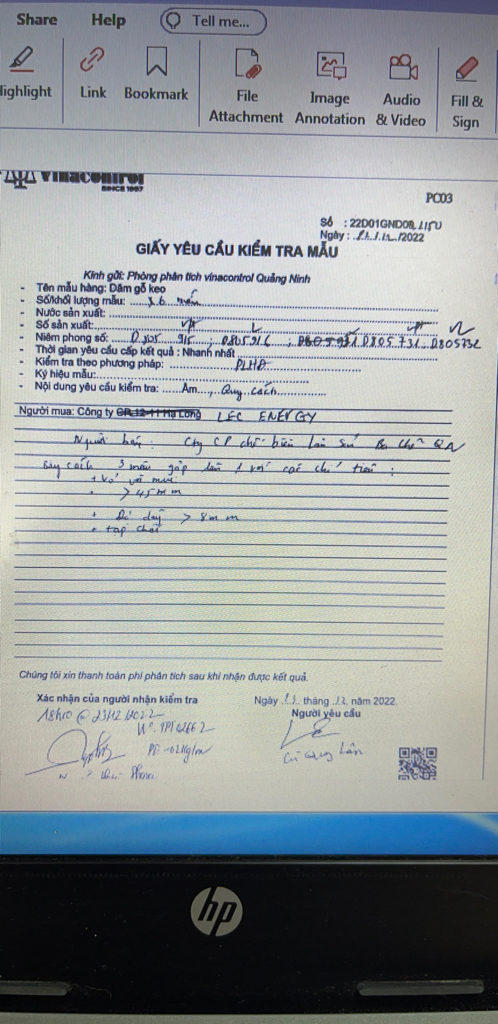 Share Help Tell me...
Highlight Link Bookmark File Attachment Image Annotation Audio & Video Fill & Sign
vinacontrol
SINCE 1957
PC03
Số : 22D01GND08
Ngày : /2022
GIẤY YÊU CẦU KIỂM TRA MẪU
Kính gửi: Phòng phân tích vinacontrol Quảng Ninh
- Tên mẫu hàng: Dăm gỗ keo
- Số/khối lượng mẫu: 3.6 mẫu
- Nước sản xuất:
- Số sản xuất:
- Niêm phong số: 0805 915 ; 0805916 ; 0805731 0805732
- Thời gian yêu cầu cấp kết quả : Nhanh nhất
- Kiểm tra theo phương pháp: PLHĐ
- Ký hiệu mẫu:
- Nội dung yêu cầu kiểm tra: Ẩm, Quy cách
Người mua: Công ty CP 12-11 Hạ Long LEC ENERGY
Người bán: Cty CP chế biến lâm sản Ba Chẽ QN
Quy cách 3 mẫu gộp làm 1 với các chỉ tiêu :
+ Vỏ
> 45 mm
+ Độ dày > 8 mm
+ tạp chất
Chúng tôi xin thanh toán phí phân tích sau khi nhận được kết quả.
Xác nhận của người nhận kiểm tra
Ngày 23 tháng 12 năm 2022
Người yêu cầu
18h10 @ 23/12/2022
hp